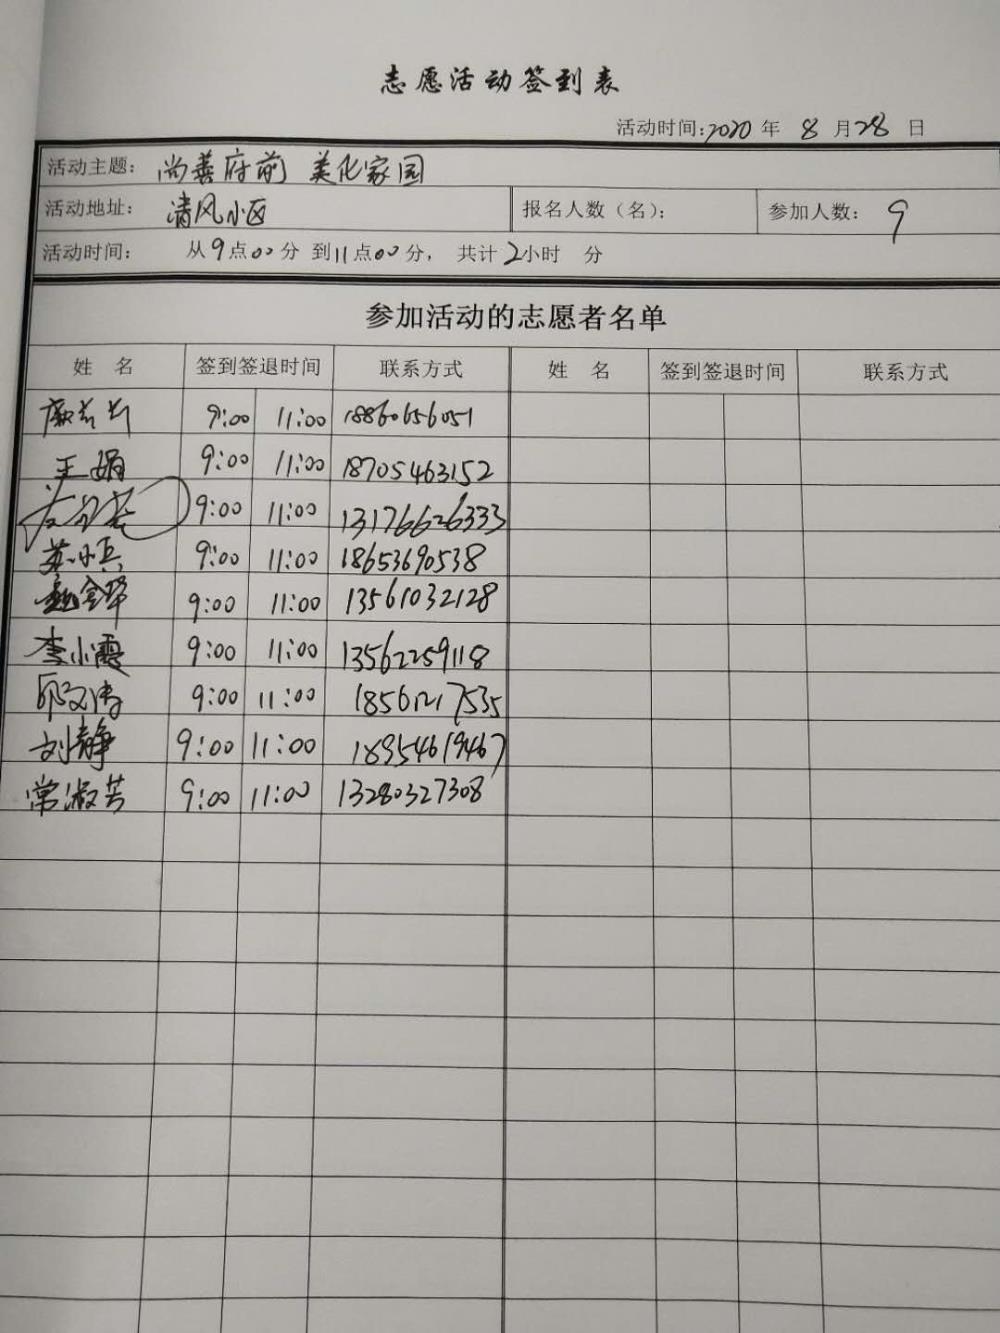 志愿活动签到表
活动时间:2020 年 8 月 28 日
活动主题: 尚善府前 美化家园
活动地址: 清风小区 报名人数(名): 参加人数: 9
活动时间: 从9点00分 到11点00分, 共计2小时 分
参加活动的志愿者名单
姓 名 签到签退时间 联系方式 姓 名 签到签退时间 联系方式
9:00 11:00 18860656051
王娟 9:00 11:00 18705463152
9:00 11:00 13176626333
苏小兵 9:00 11:00 18653690538
9:00 11:00 13561032128
李小霞 9:00 11:00 13562259118
邱文涛 9:00 11:00 18561217535
刘静 9:00 11:00 18954619467
常淑芳 9:00 11:00 13280327308